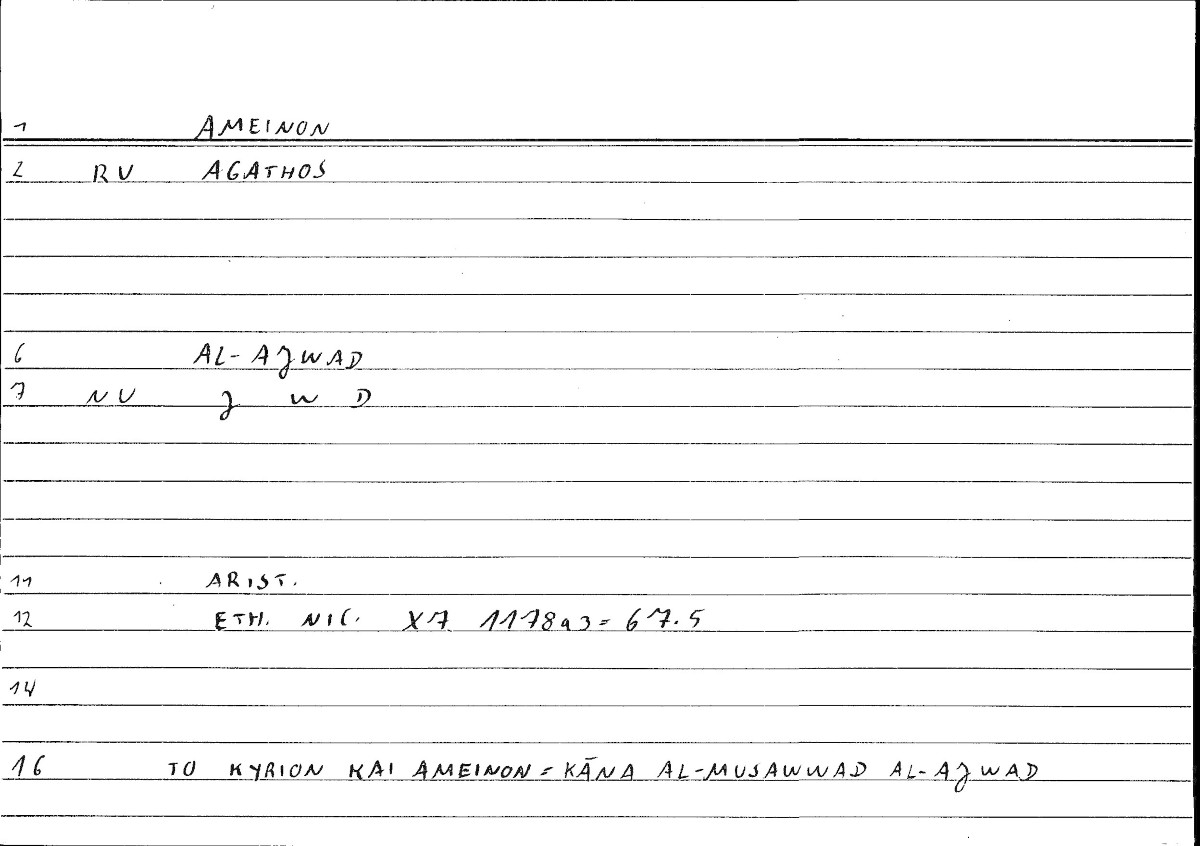 1 AMEINON
2 RU AGATHOS
6 AL-AJWAD
7 NU J W D
11 ARIST.
12 ETH. NIC. X7 1178a3=67.5
14
16 TO KYRION KAI AMEINON = KĀNA AL-MUSAWWAD AL-AJWAD